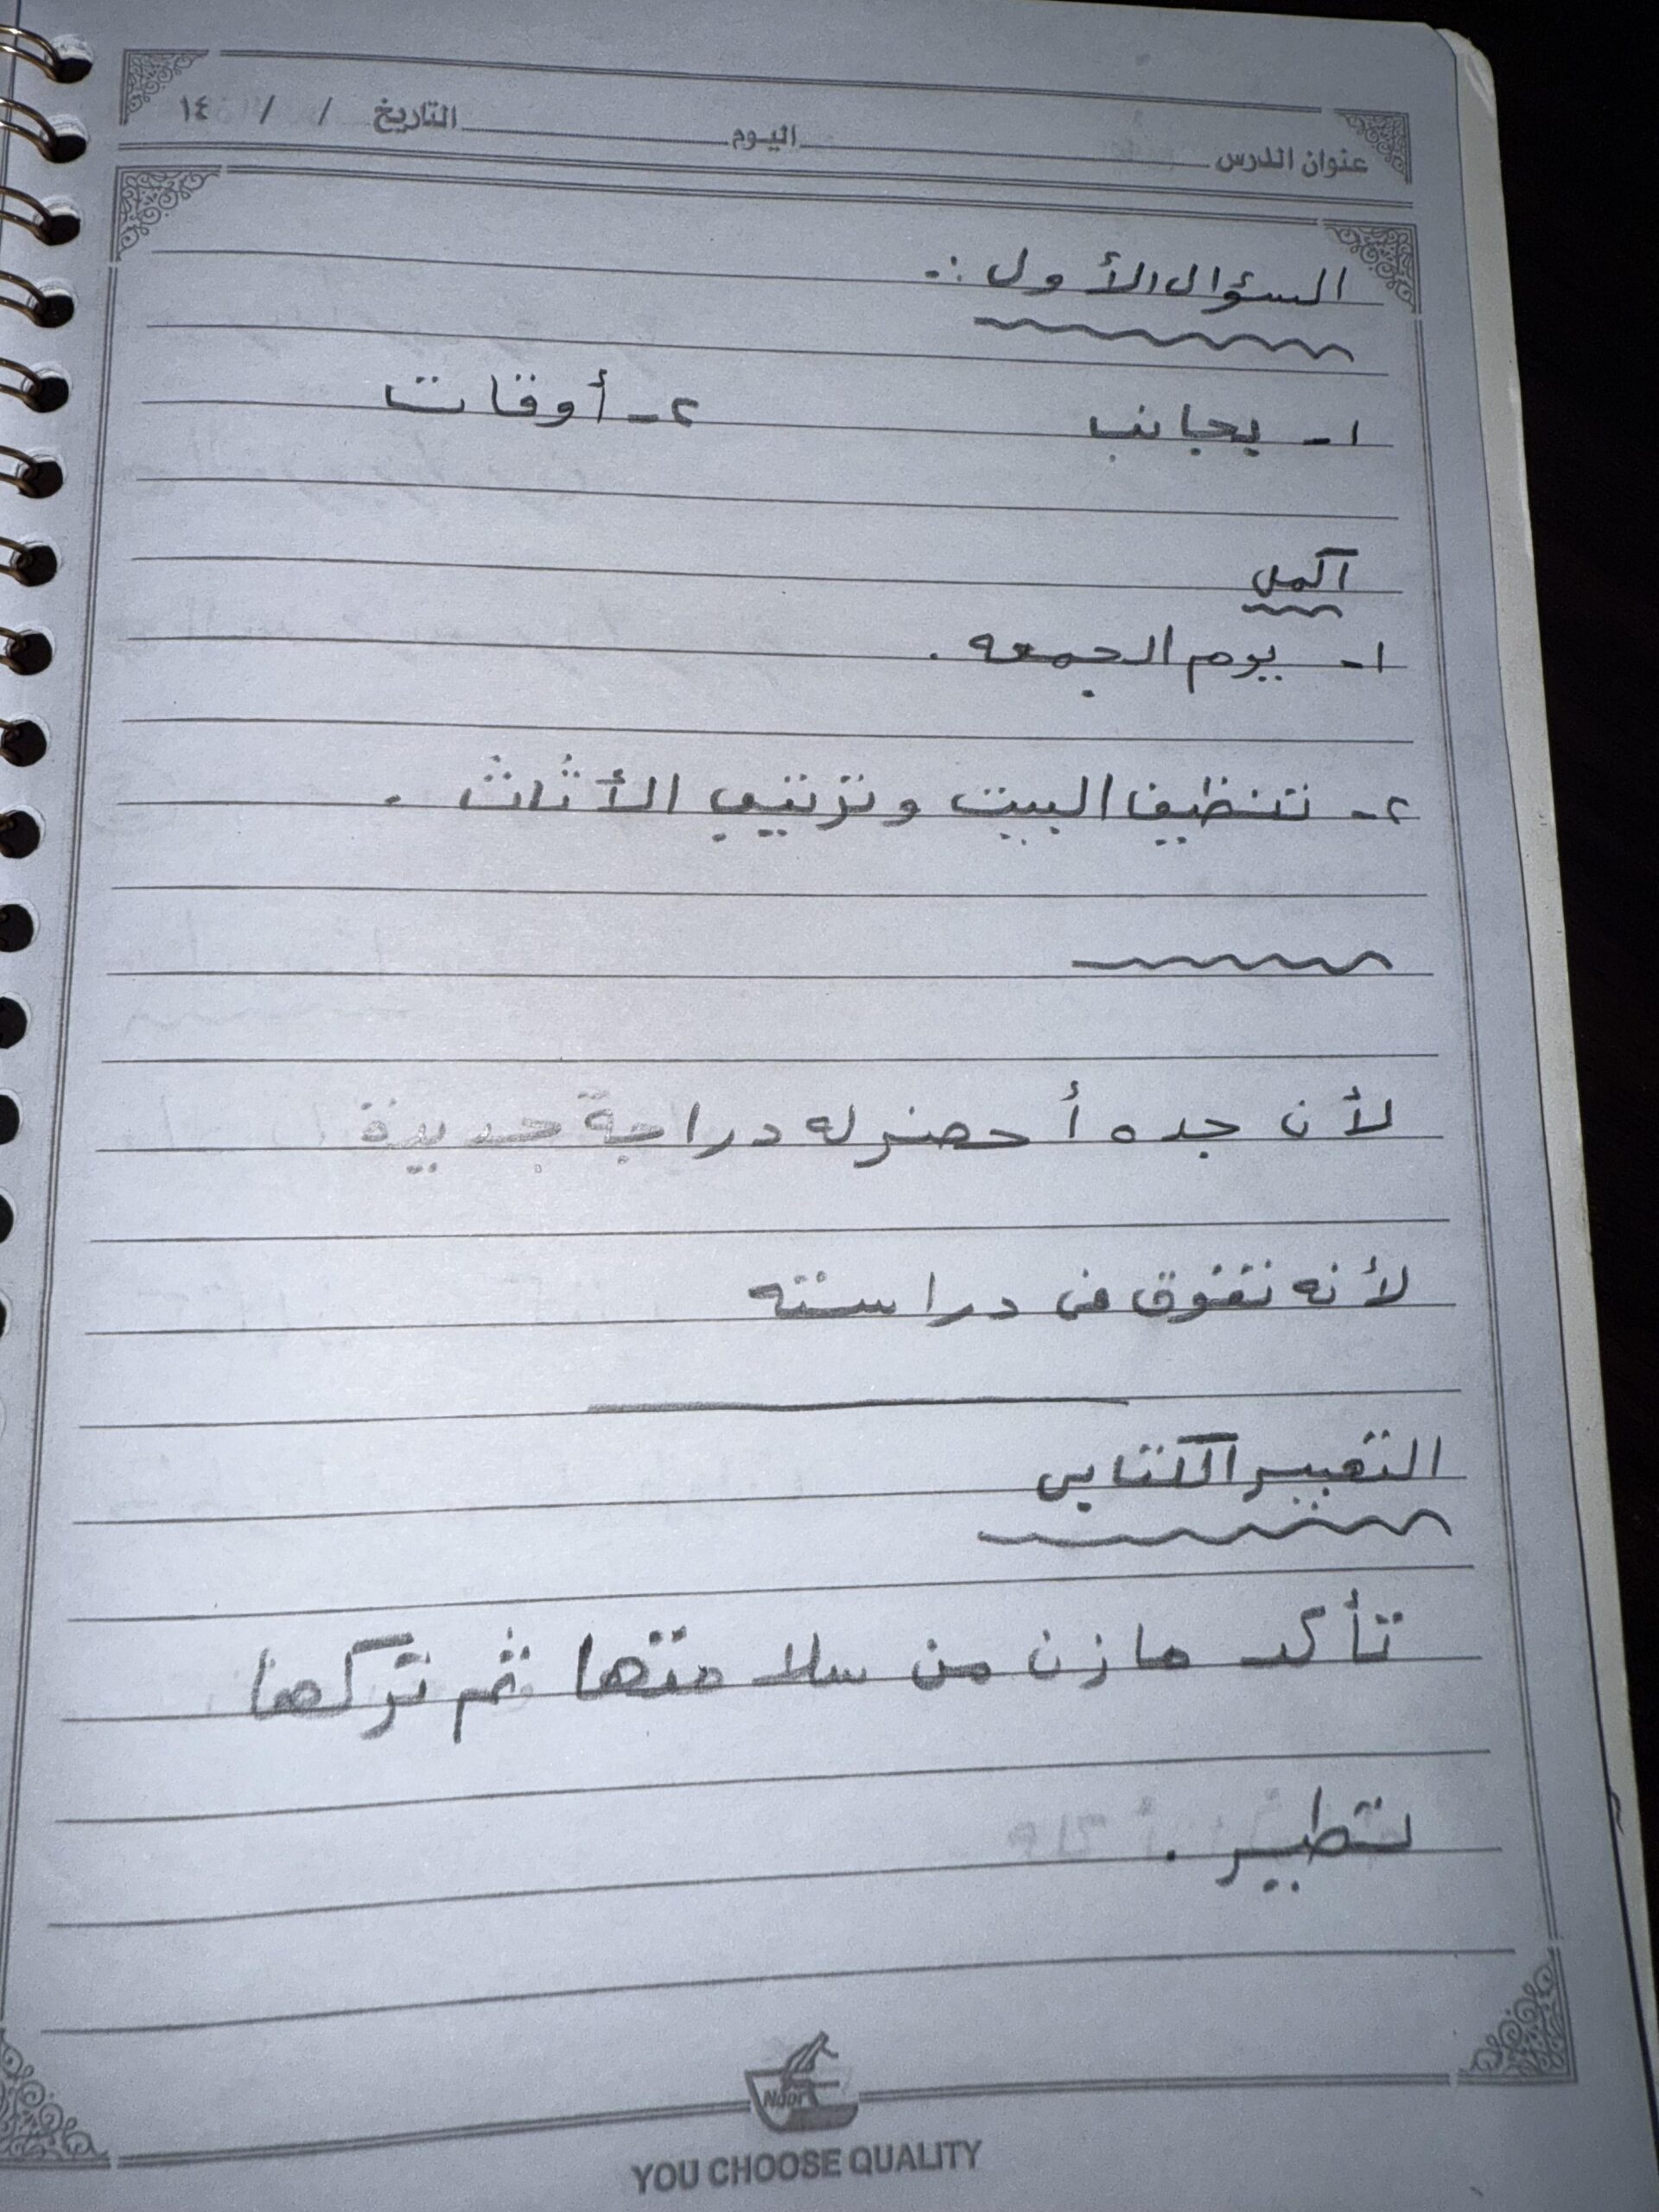 عنوان الدرس اليوم التاريخ / / ١٤
السؤال الأول :-
١- بجانب ٢- أوقات
أكمل
١- يوم الجمعه .
٢- تنظيف البيت وترتيب الأثاث .
لأن جده أحضر له دراجة جديدة
لأنه تفوق في دراسته
التعبير الكتابي
تأكد مازن من سلامتها ثم تركها
تطير .
Noor
YOU CHOOSE QUALITY